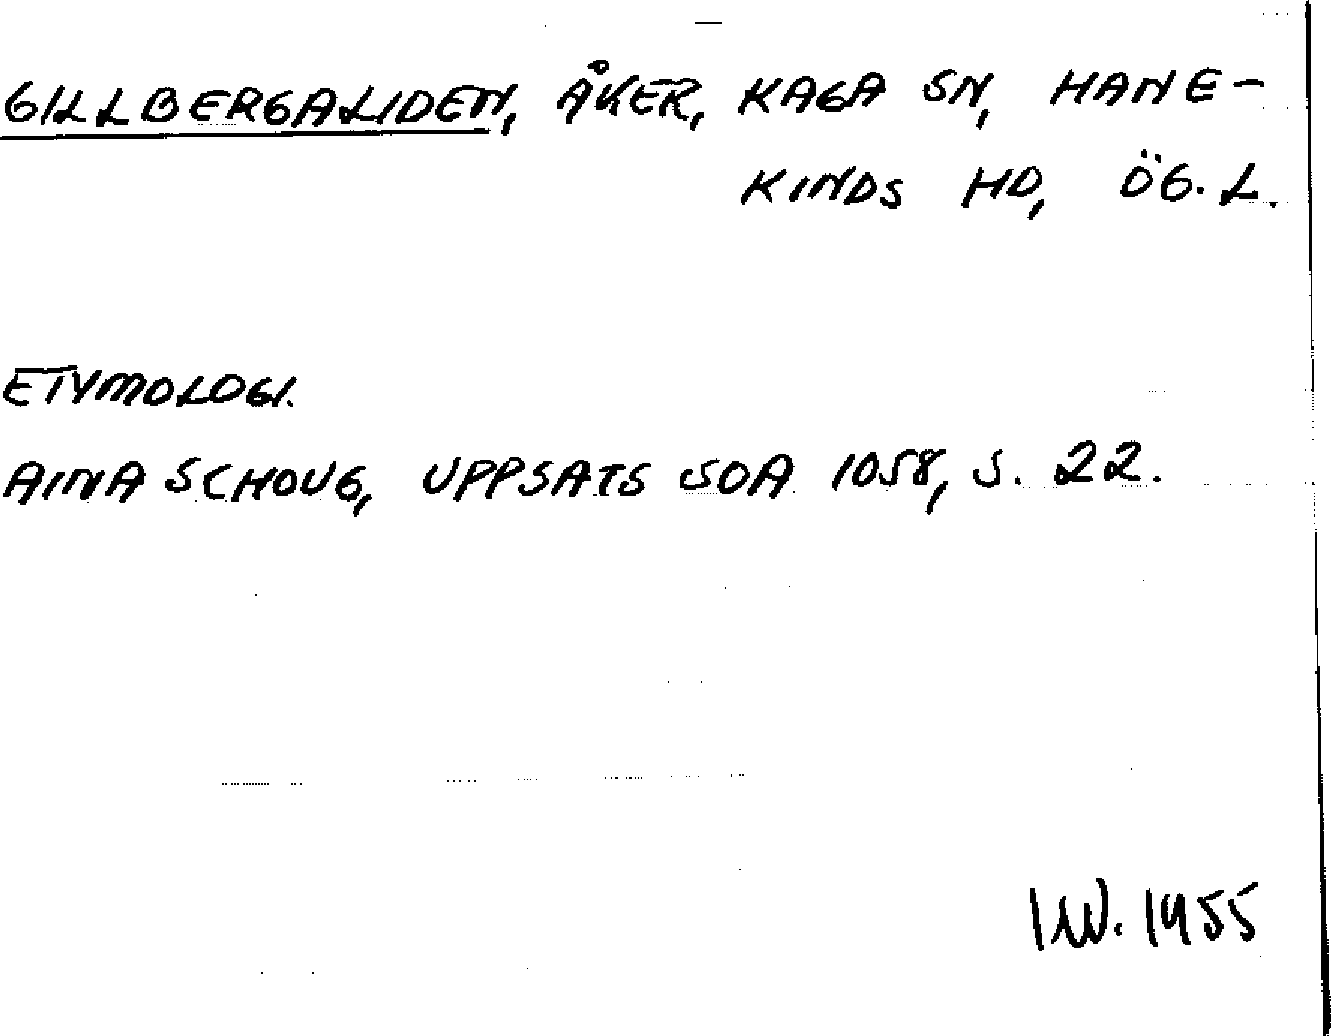 GILLBERGALIDEN, ÅKER, KAGA SN, HANE-
KINDS HD, ÖG. L.
ETYMOLOGI.
AINA SCHOUG, UPPSATS SOA 1058, S. 22.
IW. 1955